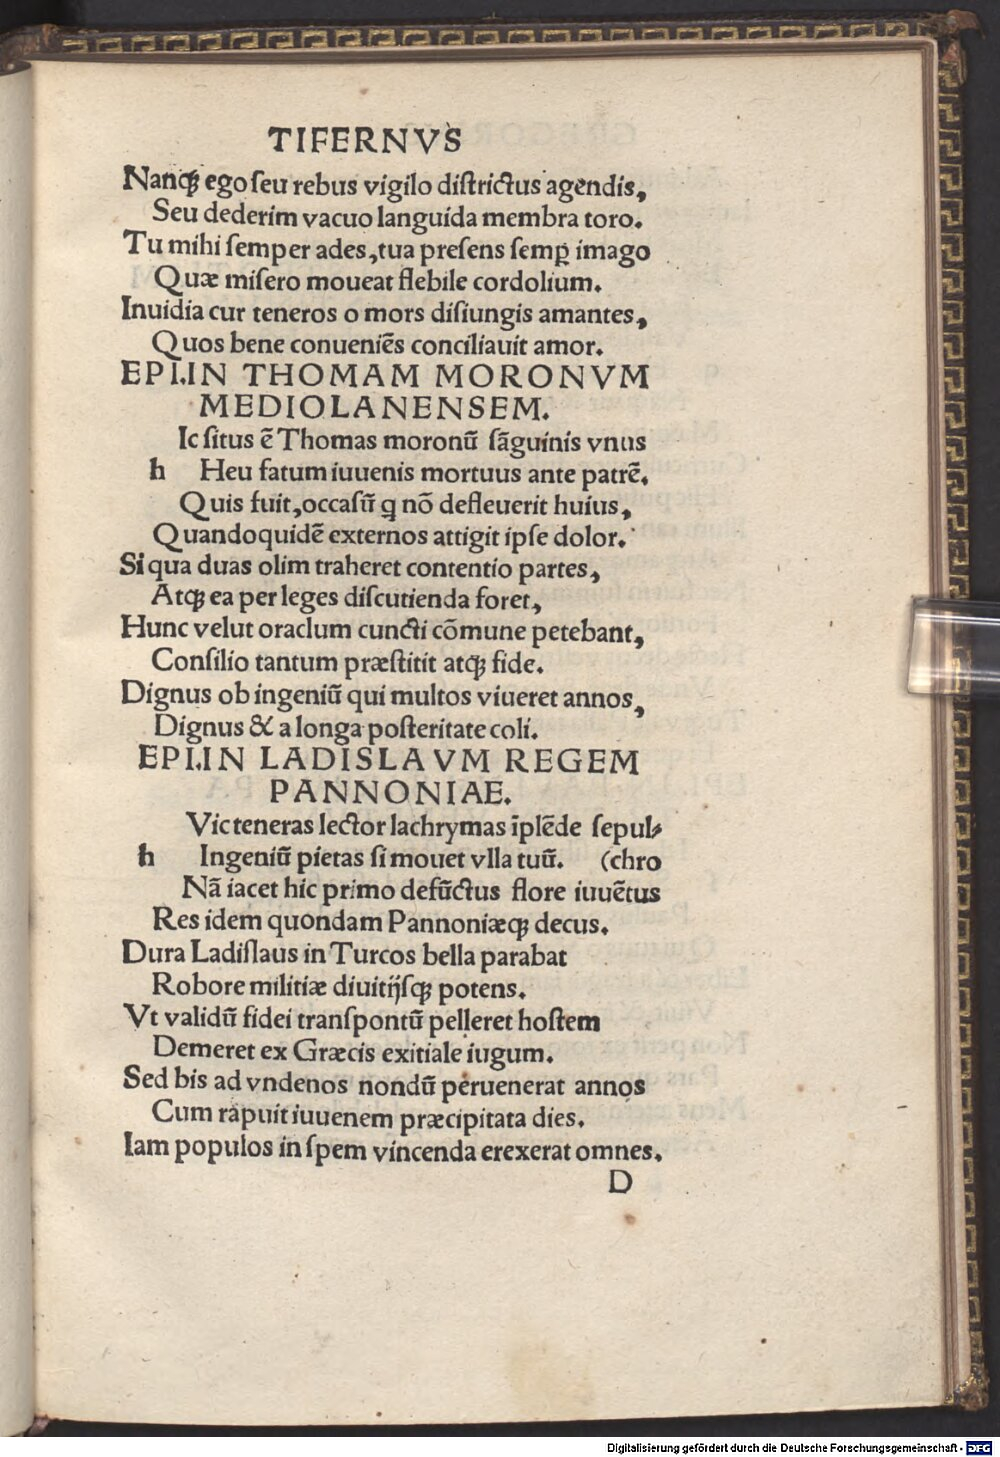 TIFERNVS
Nanqꝫ ego ſeu rebus vigilo diſtrictus agendis,
Seu dederim vacuo languida membra toro.
Tu mihi ſemper ades, tua preſens ſemꝑ imago
Quæ miſero moueat flebile cordolium.
Inuidia cur teneros o mors diſiungis amantes,
Quos bene conueniẽs conciliauit amor.
EPI.IN THOMAM MORONVM
MEDIOLANENSEM.
Ic ſitus ẽ Thomas moronũ ſãguinis vnus
h Heu fatum iuuenis mortuus ante patrẽ.
Quis fuit, occaſũ q nõ defleuerit huius,
Quandoquidẽ externos attigit ipſe dolor.
Si qua duas olim traheret contentio partes,
Atqꝫ ea per leges diſcutienda foret,
Hunc velut oraclum cuncti cõmune petebant,
Conſilio tantum præſtitit atqꝫ fide.
Dignus ob ingeniũ qui multos viueret annos,
Dignus & a longa poſteritate coli.
EPI.IN LADISLAVM REGEM
PANNONIAE.
Vic teneras lector lachrymas ĩplẽde ſepul⸗
h Ingeniũ pietas ſi mouet vlla tuũ. (chro
Nã iacet hic primo defũctus flore iuuẽtus
Res idem quondam Pannoniæqꝫ decus.
Dura Ladiſlaus in Turcos bella parabat
Robore militiæ diuitijſqꝫ potens.
Vt validũ fidei tranſpontũ pelleret hoſtem
Demeret ex Græcis exitiale iugum.
Sed bis ad vndenos nondũ peruenerat annos
Cum rapuit iuuenem præcipitata dies.
Iam populos in ſpem vincenda erexerat omnes.
D
Digitalisierung gefördert durch die Deutsche Forschungsgemeinschaft - DFG